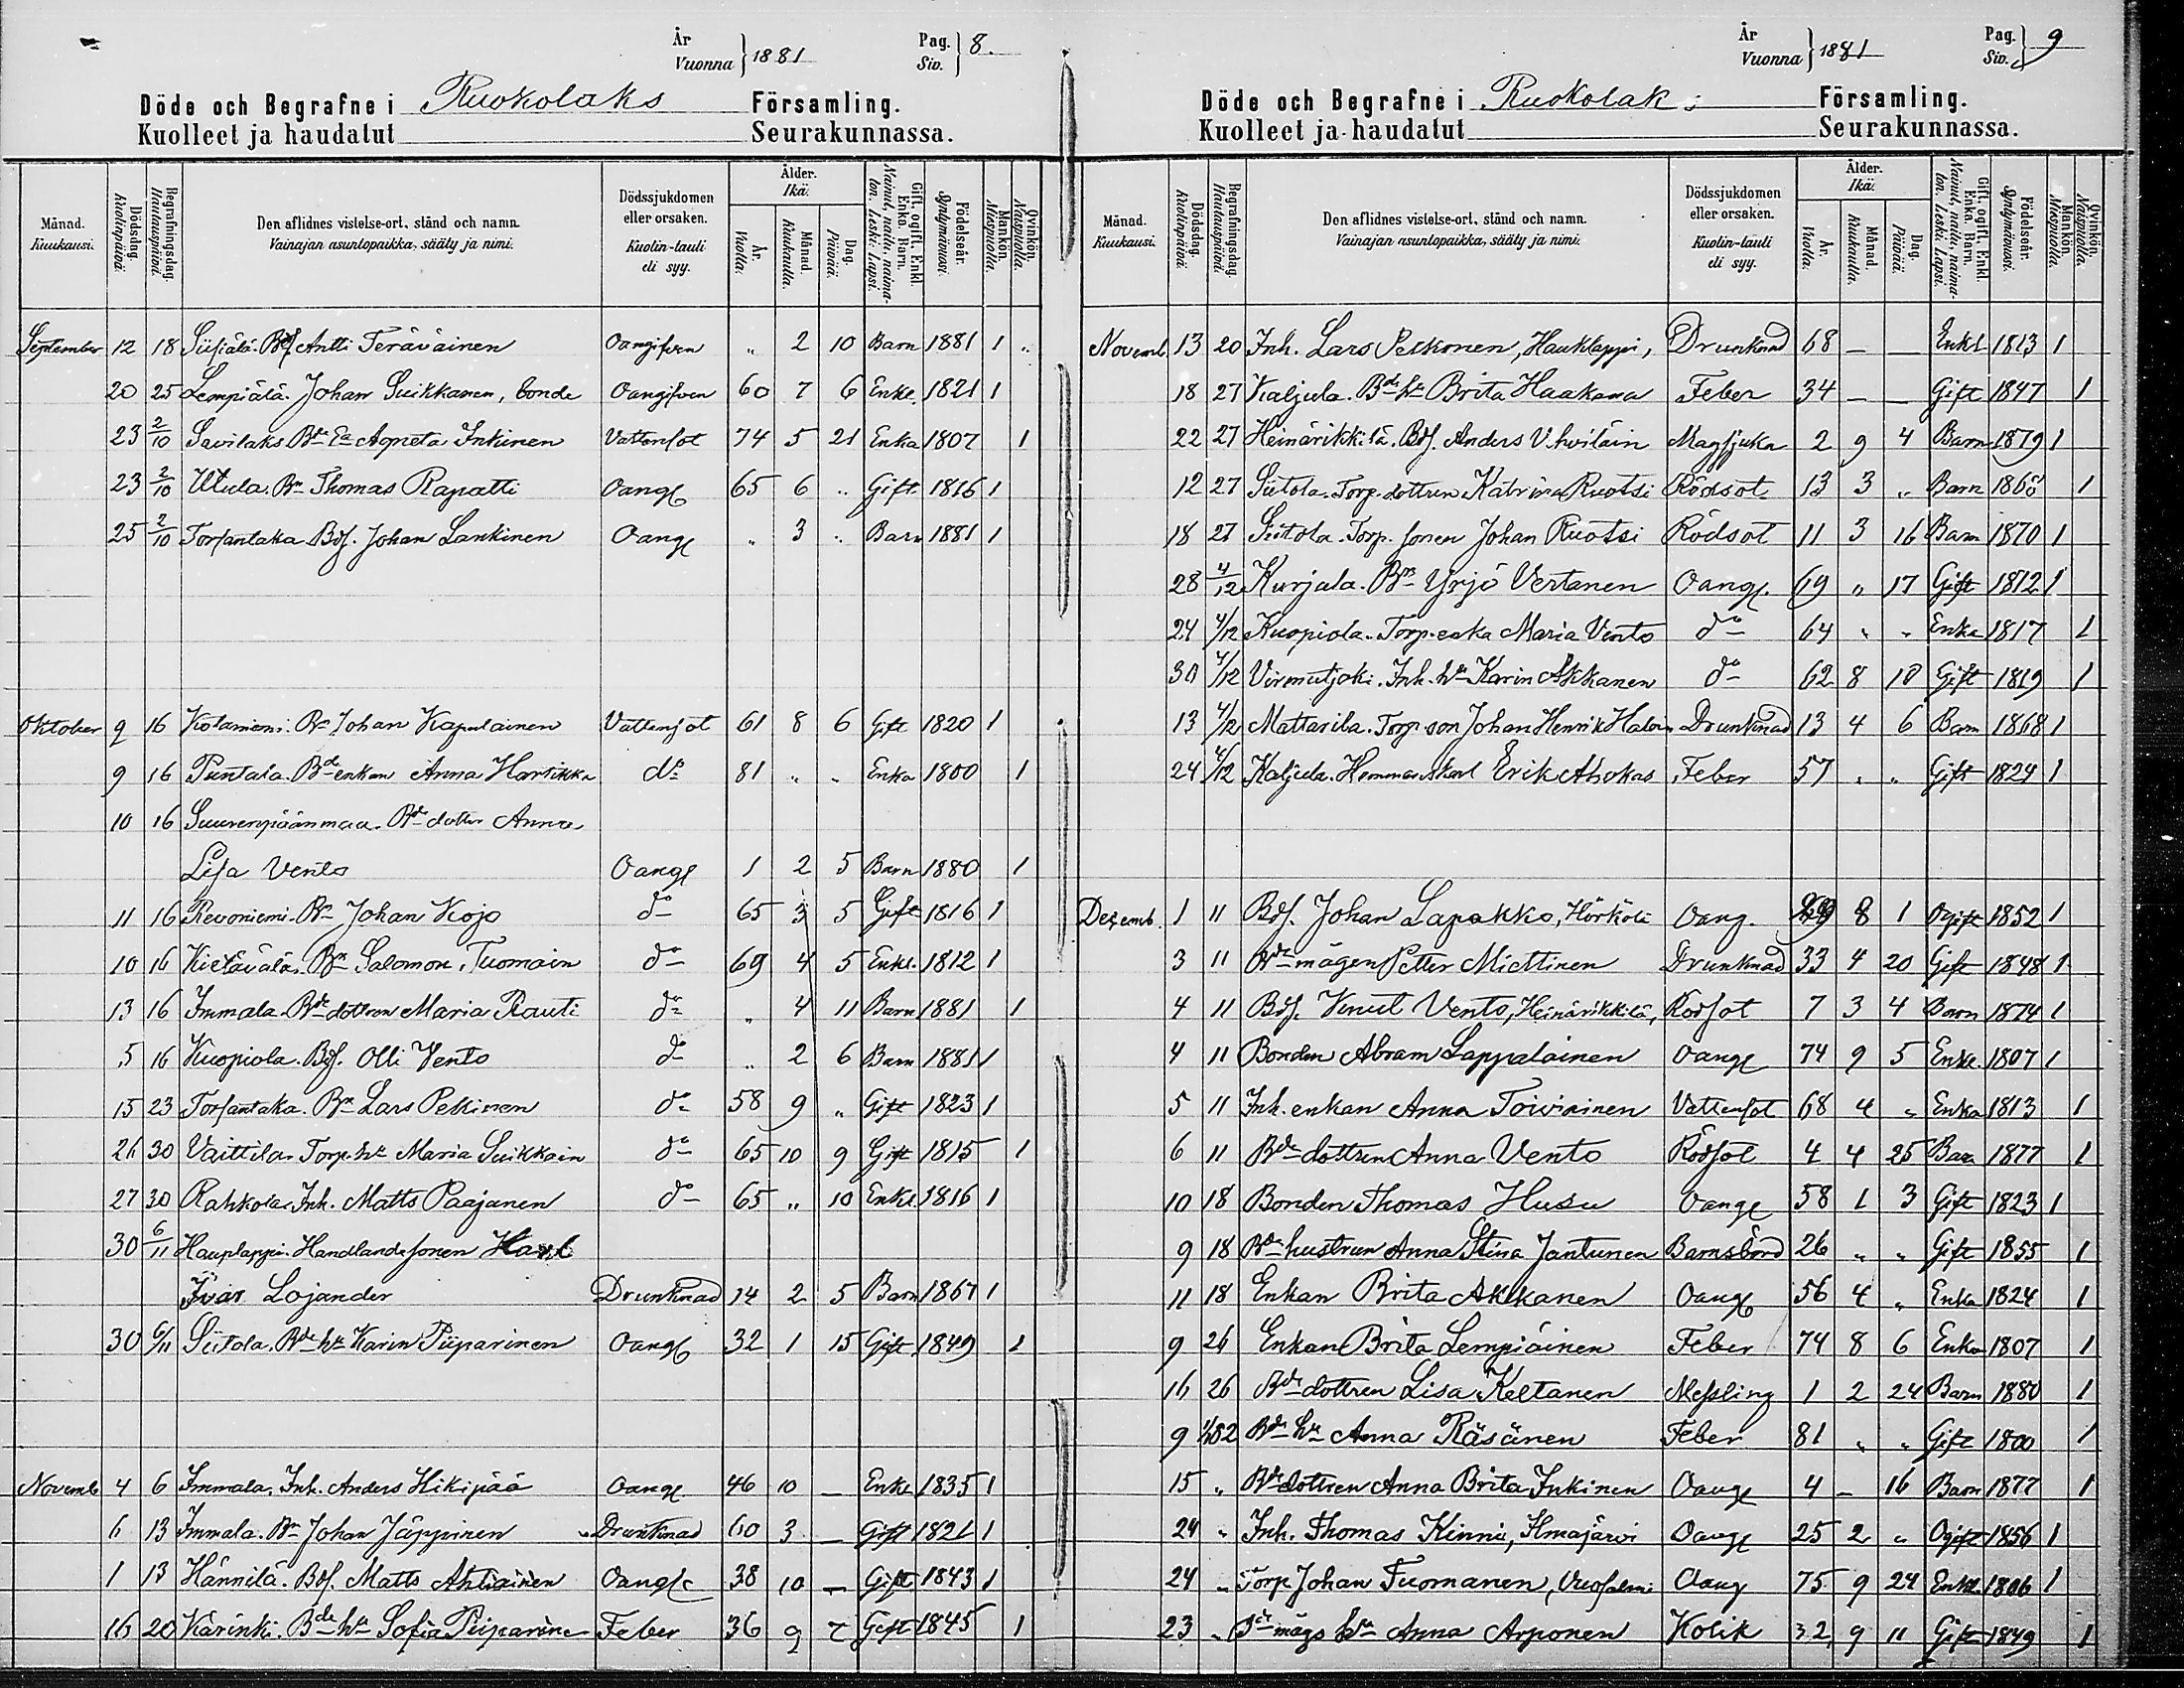 År
Vuonna } 1881
Pag.
Siv. } 8.
Döde och Begrafne i Ruokolaks Församling.
Kuolleet ja haudatut Seurakunnassa.
Månad. Kuukausi. Dödsdag. Kuolinpäivä. Begrafningsdag. Hautauspäivä. Den aflidnes vistelse-ort, stånd och namn. Vainajan asuntopaikka, sääty ja nimi. Dödssjukdomen eller orsaken. Kuolin-tauti eli syy. Ålder. Ikä. År. Vuotta. Månad. Kuukautta. Dag. Päivää. Gift, ogift, Enkl. Enka, Barn. Nainut, naitu, naimaton. Leski. Lapsi. Födelseår. Syntymävuosi. Mankön. Miespuolia. Qvinkön. Naispuolia.
September 12 18 Siisiälä. Bdf Antti Teräväinen Oangifven " 2 10 Barn 1881 1 "
20 25 Lempiälä. Johan Suikkanen, bonde Oangifven 60 7 6 Enkl. 1821 1
23 2/10 Savilaks Bde Ea Agneta Inkinen Vattensot 74 5 21 Enka 1807 1
23 2/10 Utula. Bn Thomas Rapatti Oangf 65 6 " Gift 1816 1
25 2/10 Torsantaka Bdf. Johan Lankinen Oangf " 3 " Barn 1881 1
Oktober 9 16 Kotaniemi. Bn Johan Kapulainen Vattensot 61 8 6 Gift 1820 1
9 16 Puntala. Bde enkan Anna Hartikka do 81 " " Enka 1800 1
10 16 Suurenpäänmaa. Bde dotter Anna
Lisa Vento Oangf 1 2 5 Barn 1880 1
11 16 Revoniemi. Bn Johan Kojo do 65 3 5 Gift 1816 1
10 16 Kietävälä. Bn Salomon Tuomain do 69 4 5 Enkl. 1812 1
13 16 Immala. Bde dottren Maria Rauti do " 4 11 Barn 1881 1
5 16 Kuopiola. Bdf. Olli Vento do " 2 6 Barn 1881 1
15 23 Torsantaka. Bn Lars Pekkinen do 58 9 " Gift 1823 1
26 30 Vaittila. Torp. hu Maria Suikkain do 65 10 9 Gift 1815 1
27 30 Rahkola. Inh. Matts Paajanen do 65 " 10 Enkl. 1816 1
30 6/11 Hauplappi. Handlandesonen Karl
Ivar Lojander Drunknad 14 2 5 Barn 1867 1
30 6/11 Siitola. Bde hu Karin Piiparinen Oangf 32 1 15 Gift 1849 1
Novemb 4 6 Immala. Inh. Anders Hikipää Oangf. 46 10 – Enkl 1835 1
6 13 Immala. Bn Johan Jäppinen Drunknad 60 3 – Gift 1821 1
1 13 Hännilä. Bdf. Matts Ahtiainen Oangf 38 10 – Gift 1843 1
16 20 Kärinki. Bde hu Sofia Piiparine Feber 36 9 Gift 1845 1
År
Vuonna } 1881
Pag.
Siv. } 9
Döde och Begrafne i Ruokolaks Församling.
Kuolleet ja haudatut Seurakunnassa.
Månad. Kuukausi. Dödsdag. Kuolinpäivä. Begrafningsdag. Hautauspäivä. Den aflidnes vistelse-ort, stånd och namn. Vainajan asuntopaikka, sääty ja nimi. Dödssjukdomen eller orsaken. Kuolin-tauti eli syy. Ålder. Ikä. År. Vuotta. Månad. Kuukautta. Dag. Päivää. Gift, ogift, Enkl. Enka, Barn. Nainut, naitu, naimaton. Leski. Lapsi. Födelseår. Syntymävuosi. Mankön. Miespuolia. Qvinkön. Naispuolia.
Novemb. 13 20 Inh. Lars Pekkonen, Hauklappi, Drunknad 68 – – Enkl 1813 1
18 27 Kaljula. Bde hu Brita Haakana Feber 34 – – Gift 1847 1
22 27 Heinärikkilä. Bdf. Anders Vihviläin Magsjuka 2 9 4 Barn 1879 1
12 27 Siitola. Torp. dottren Katrina Ruotsi Rödsot 13 3 " Barn 1868 1
18 27 Siitola. Torp. sonen Johan Ruotsi Rödsot 11 3 16 Barn 1870 1
28 4/12 Kurjala. Bn Yrjö Vertanen Oangf. 69 " 17 Gift 1812 1
24 4/12 Kuopiola. Torp. enka Maria Vento do 64 " " Enka 1817 1
30 4/12 Virmutjoki. Inh. hu Karin Akkanen do 62 8 10 Gift 1819 1
13 4/12 Mattarila. Torp. son Johan Henrik Halon Drunknad 13 4 6 Barn 1868 1
24 4/12 Kaljula. Hemmaskarl Erik Ahokas Feber 57 " " Gift 1824 1
Dezemb. 1 11 Bdf. Johan Lapakko, Härkölä Oang. 29 8 1 Ogift 1852 1
3 11 Bde mågen Petter Miettinen Drunknad 33 4 20 Gift 1848 1
4 11 Bdf. Knut Vento, Heinärikkilä, Rödsot 7 3 4 Barn 1874 1
4 11 Bonden Abram Lappalainen Oangf 74 9 5 Enkl. 1807 1
5 11 Inh. enkan Anna Toiviainen Vattensot 68 4 " Enka 1813 1
6 11 Bde dottren Anna Vento Rödsot 4 4 25 Barn 1877 1
10 18 Bonden Thomas Husu Oangf 58 1 3 Gift 1823 1
9 18 Bde hustrun Anna Stina Jantunen Barnsbörd 26 " " Gift 1855 1
11 18 Enkan Brita Akkanen Oangf 56 4 " Enka 1824 1
9 26 Enkan Brita Lempiäinen Feber 74 8 6 Enka 1807 1
16 26 Bde dottren Lisa Keltanen Messling 1 2 24 Barn 1880 1
9 1/1 82 Bde hu Anna Räsänen Feber 81 " " Gift 1800 1
15 " Bde dottren Anna Brita Inkinen Oangf 4 – 16 Barn 1877 1
24 " Inh. Thomas Kinnu, Ilmajärvi Oangf 25 2 " Ogift 1856 1
24 " Torp. Johan Tuomanen, Vuosalmi Oang 75 9 24 Enkl. 1806 1
23 " Bde mågs hu Anna Arponen Kolik 32 9 11 Gift 1849 1